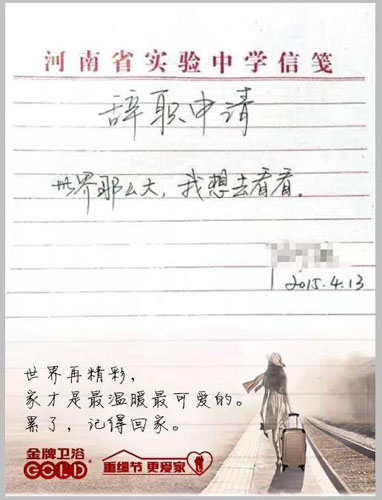 河南省实验中学信笺
辞职申请
世界那么大，我想去看看。
2015.4.13
世界再精彩，
家才是最温暖最可爱的。
累了，记得回家。
金牌卫浴
GOLD
重细节 更爱家